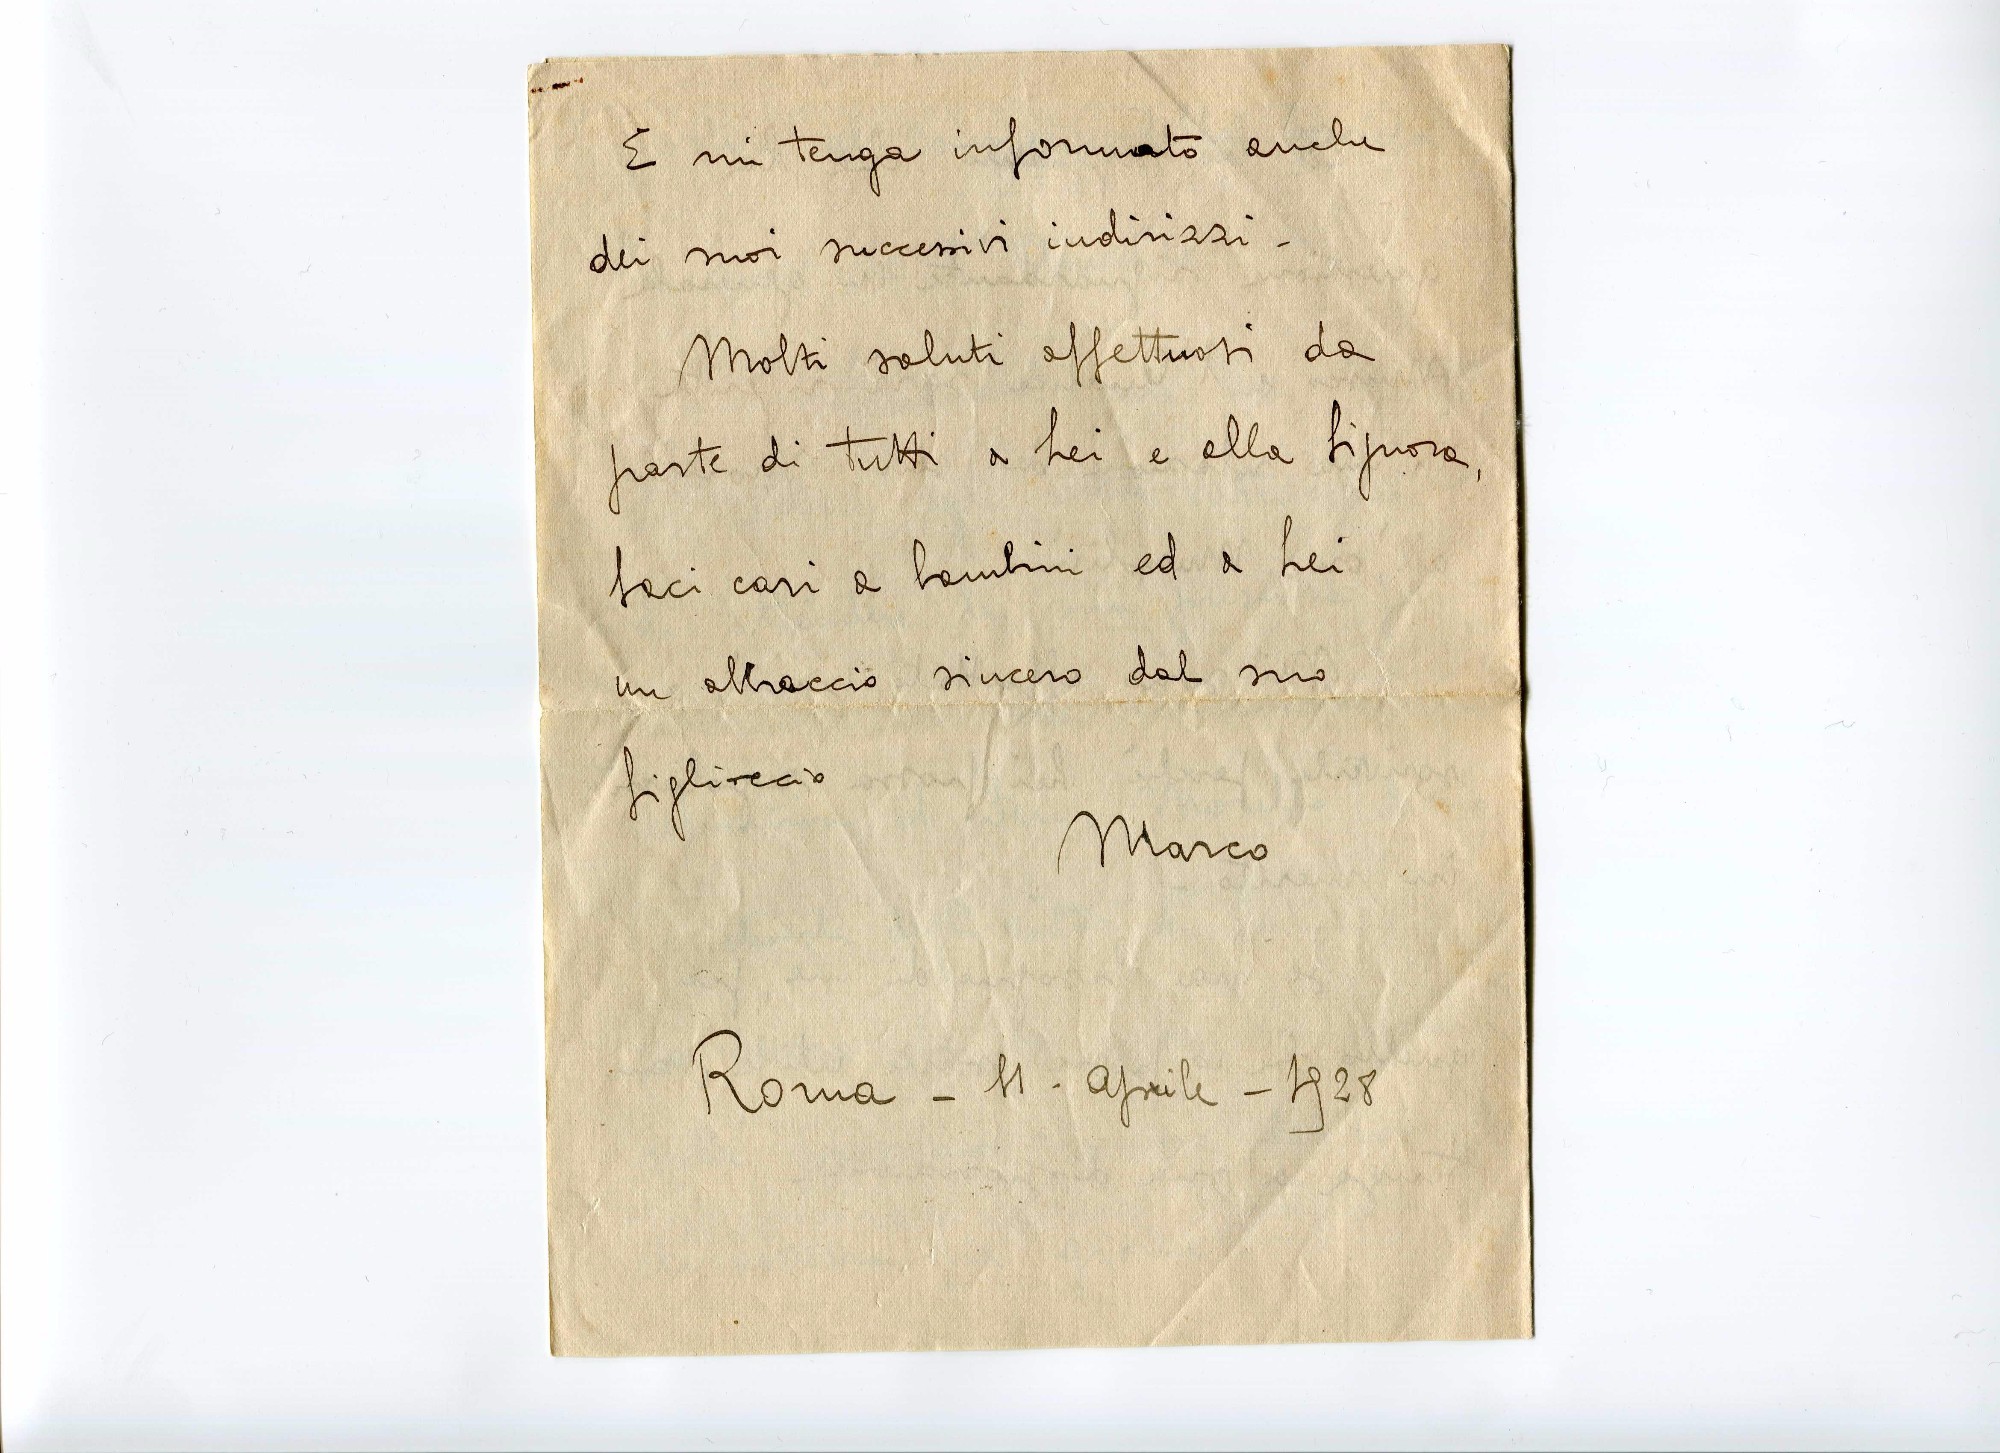 E mi tenga informato anche
dei suoi successivi indirizzi -
Molti saluti affettuosi da
parte di tutti a Lei e alla Signora,
baci cari a bambini ed a Lei
un abbraccio sincero dal suo
figlioccio
Marco
Roma - 11 - Aprile - 1928